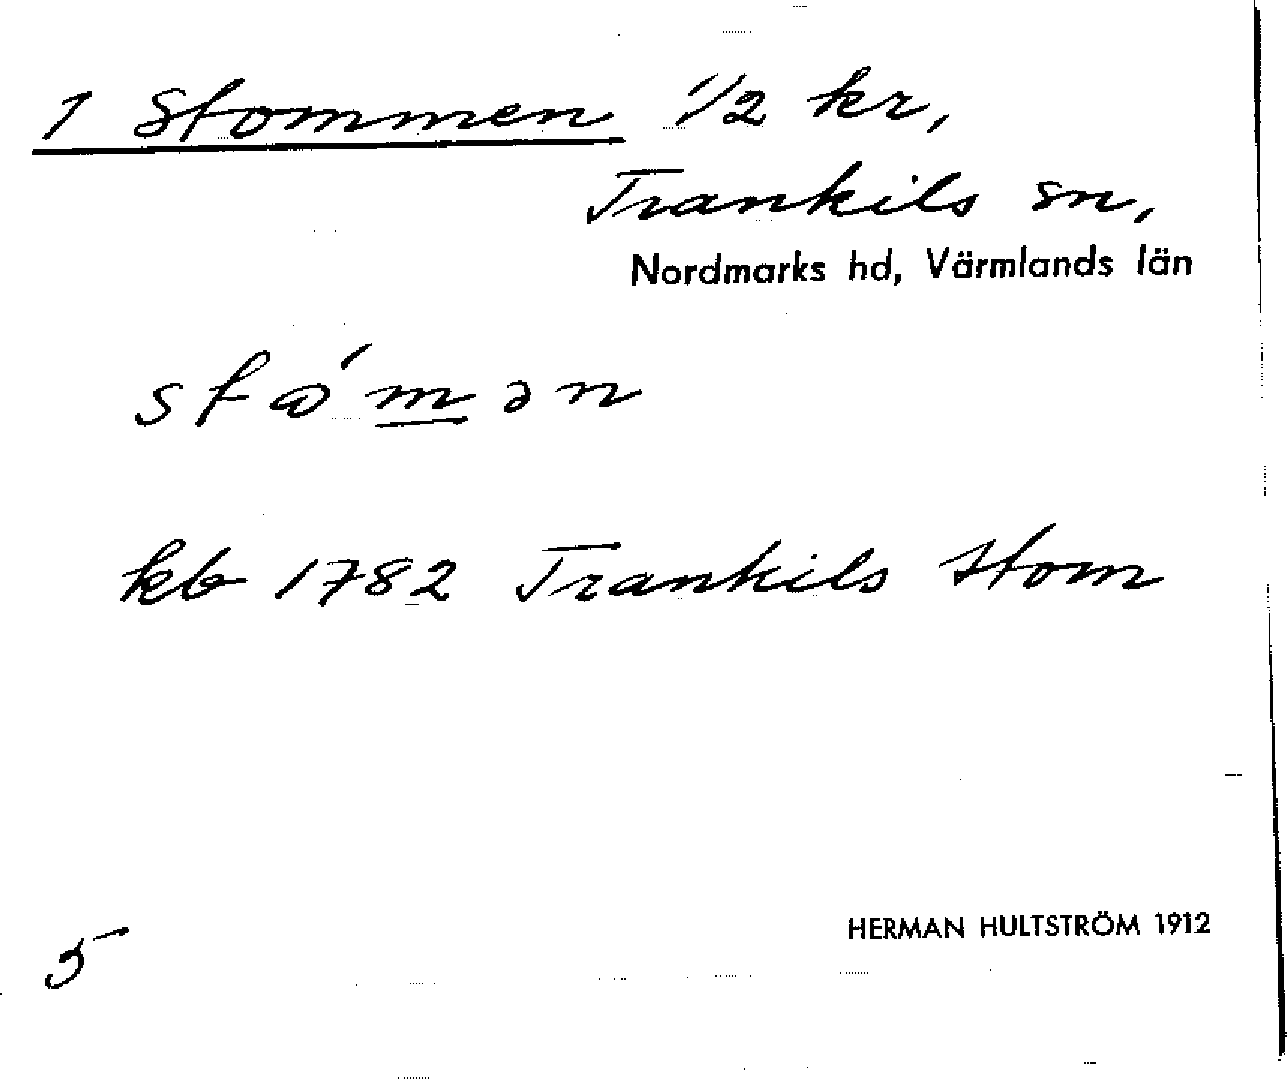 1 Stommen 1/2 kr,
Trankils sn,
Nordmarks hd, Värmlands län
stɷ́mən
kb 1782 Trankils stom
HERMAN HULTSTRÖM 1912
5